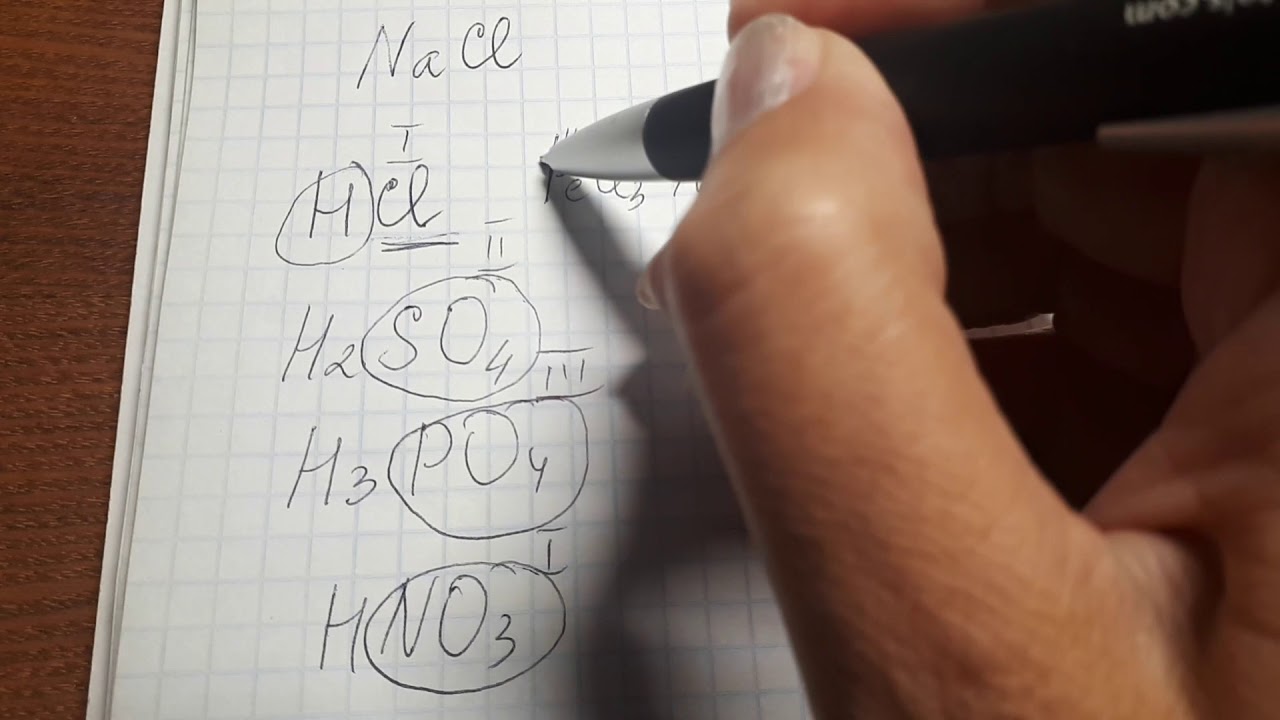 NaCl
I
HCl
FeCl3
II
H2SO4
III
H3PO4
I
HNO3